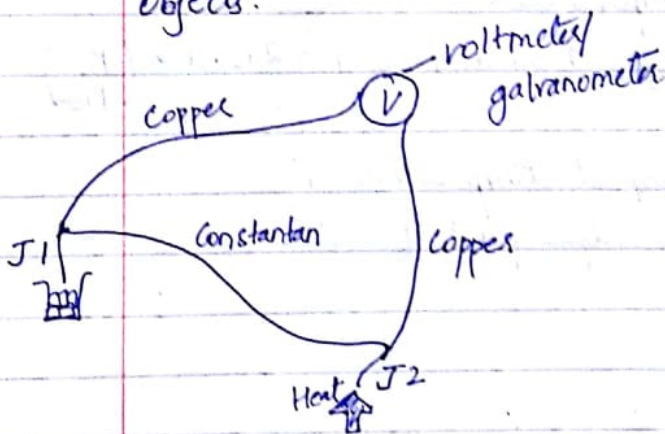 objects.
voltmeter/
galvanometer
Copper
V
J1
Constantan
Copper
J2
Heat